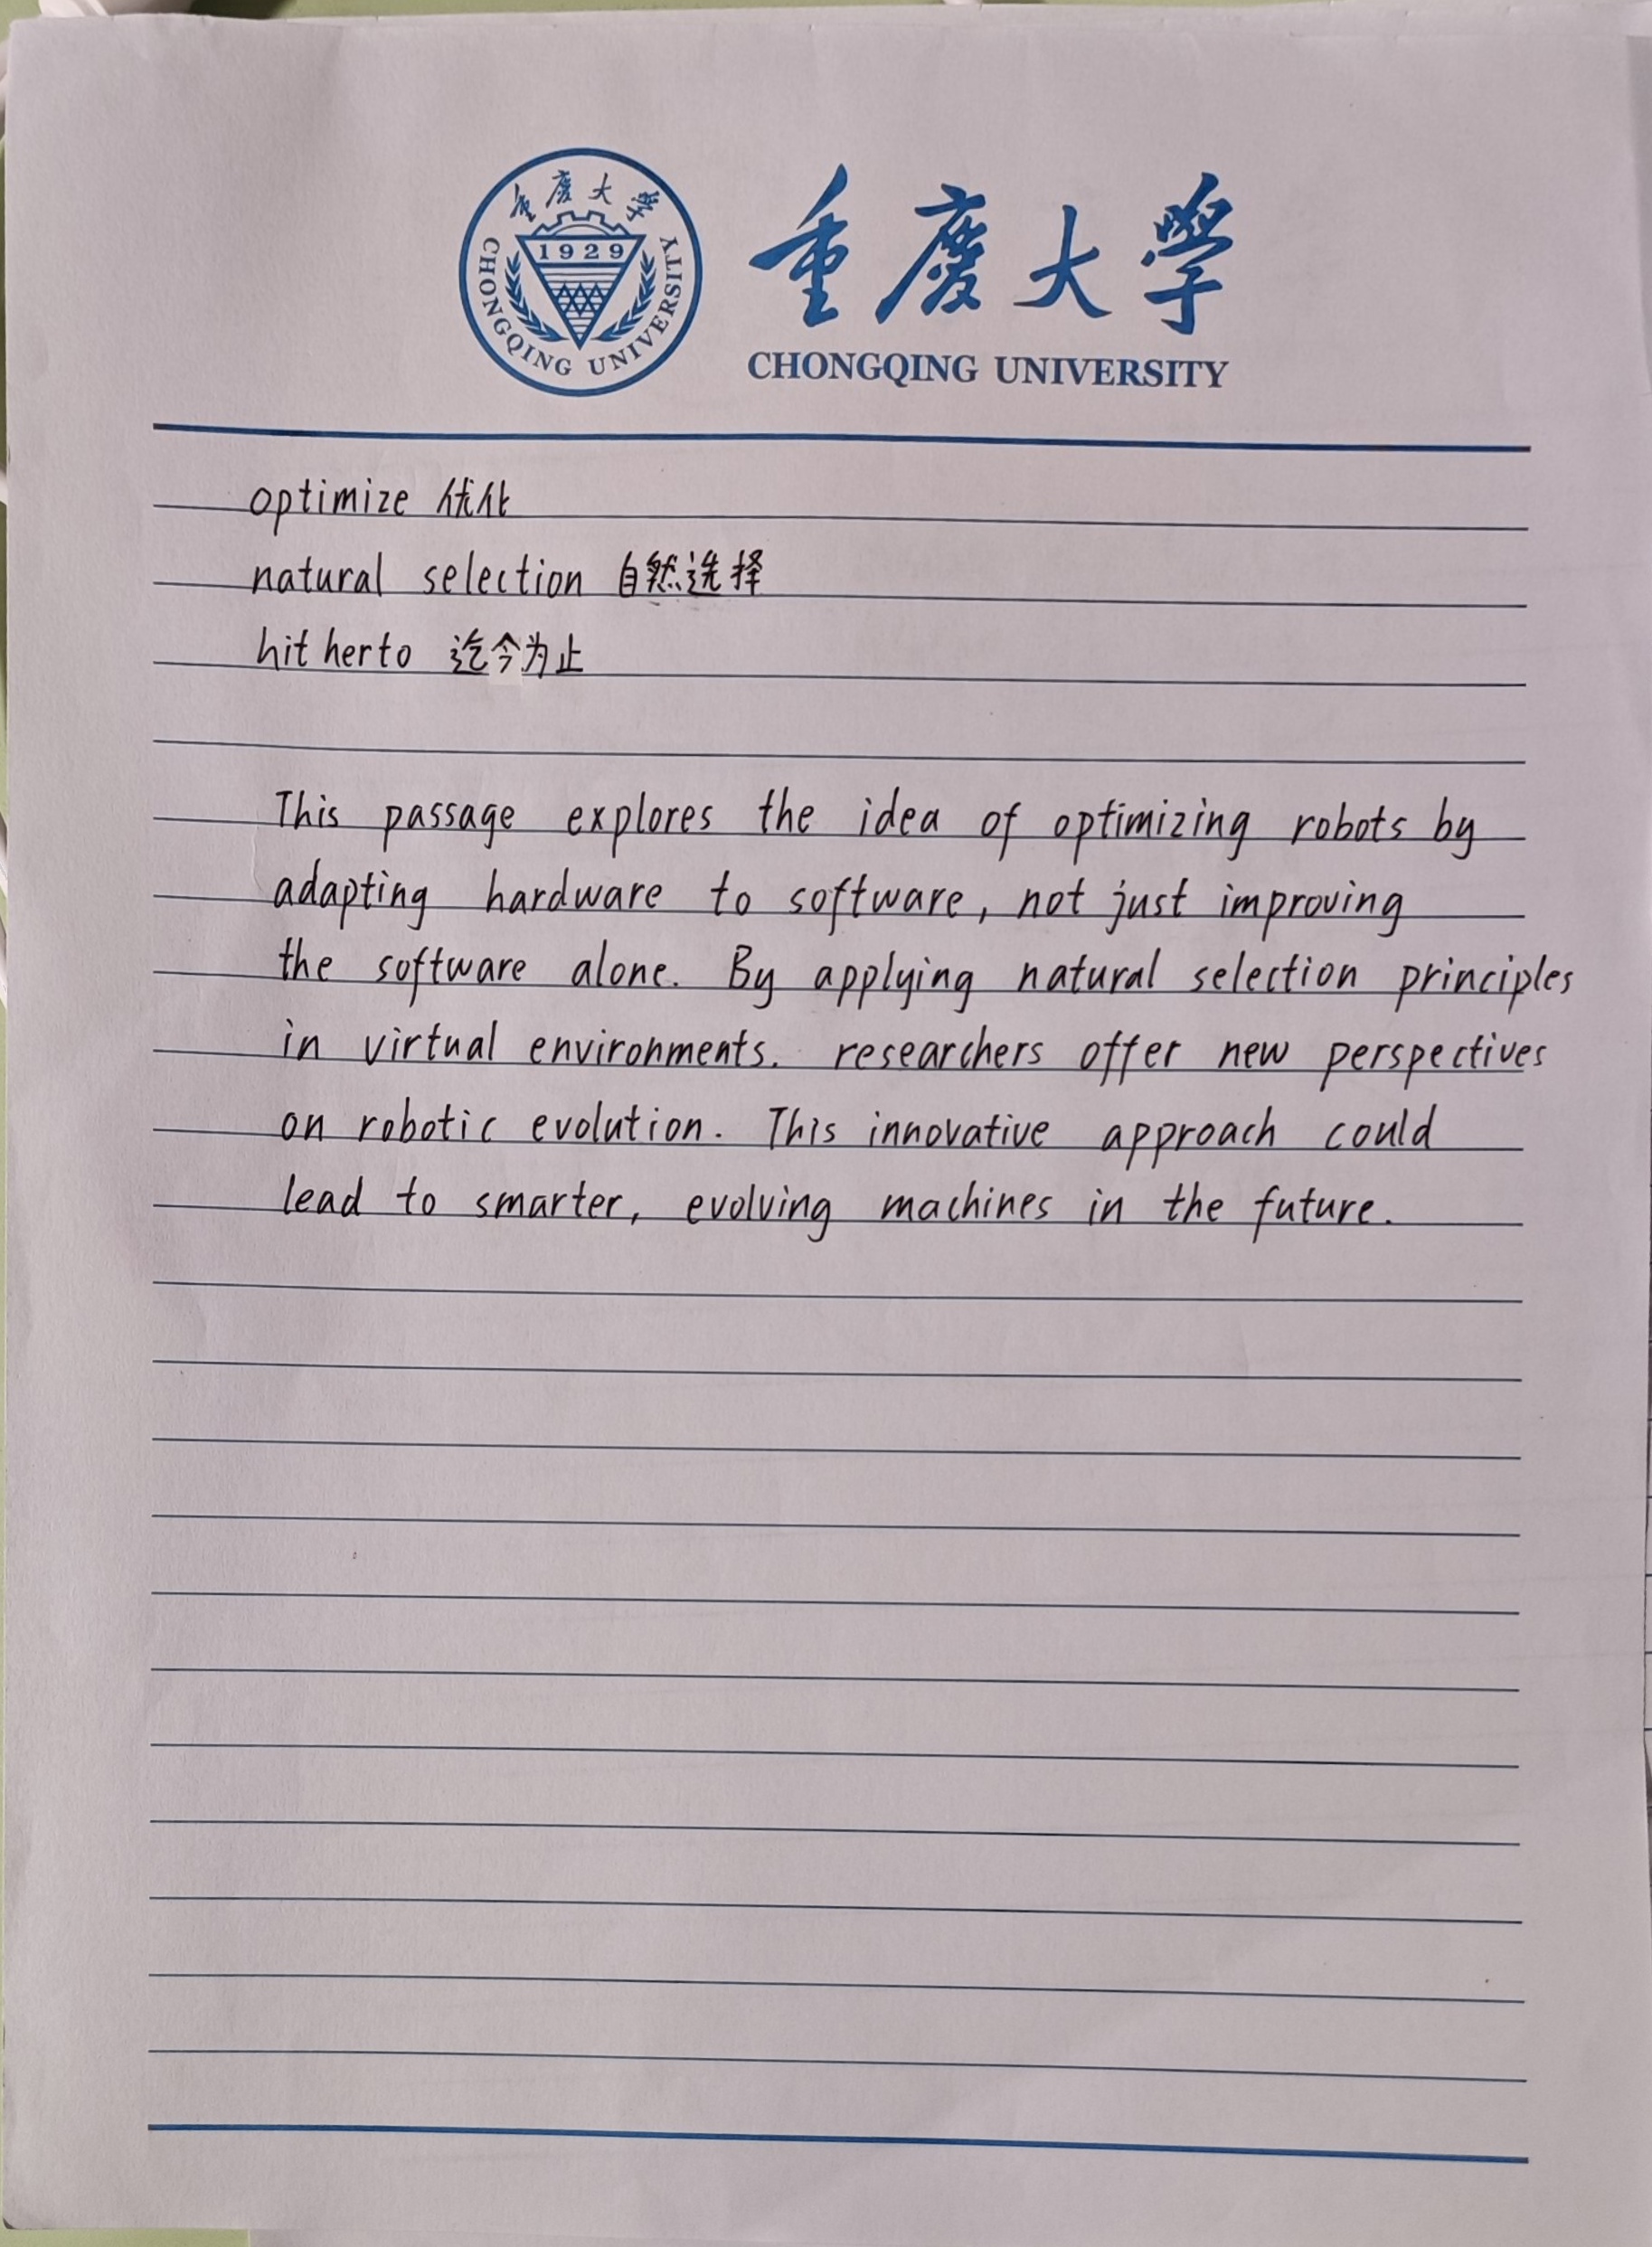 重慶大學
1929
CHONGQING UNIVERSITY
重慶大學
CHONGQING UNIVERSITY
optimize 优化
natural selection 自然选择
hitherto 迄今为止
This passage explores the idea of optimizing robots by
adapting hardware to software, not just improving
the software alone. By applying natural selection principles
in virtual environments. researchers offer new perspectives
on robotic evolution. This innovative approach could
lead to smarter, evolving machines in the future.